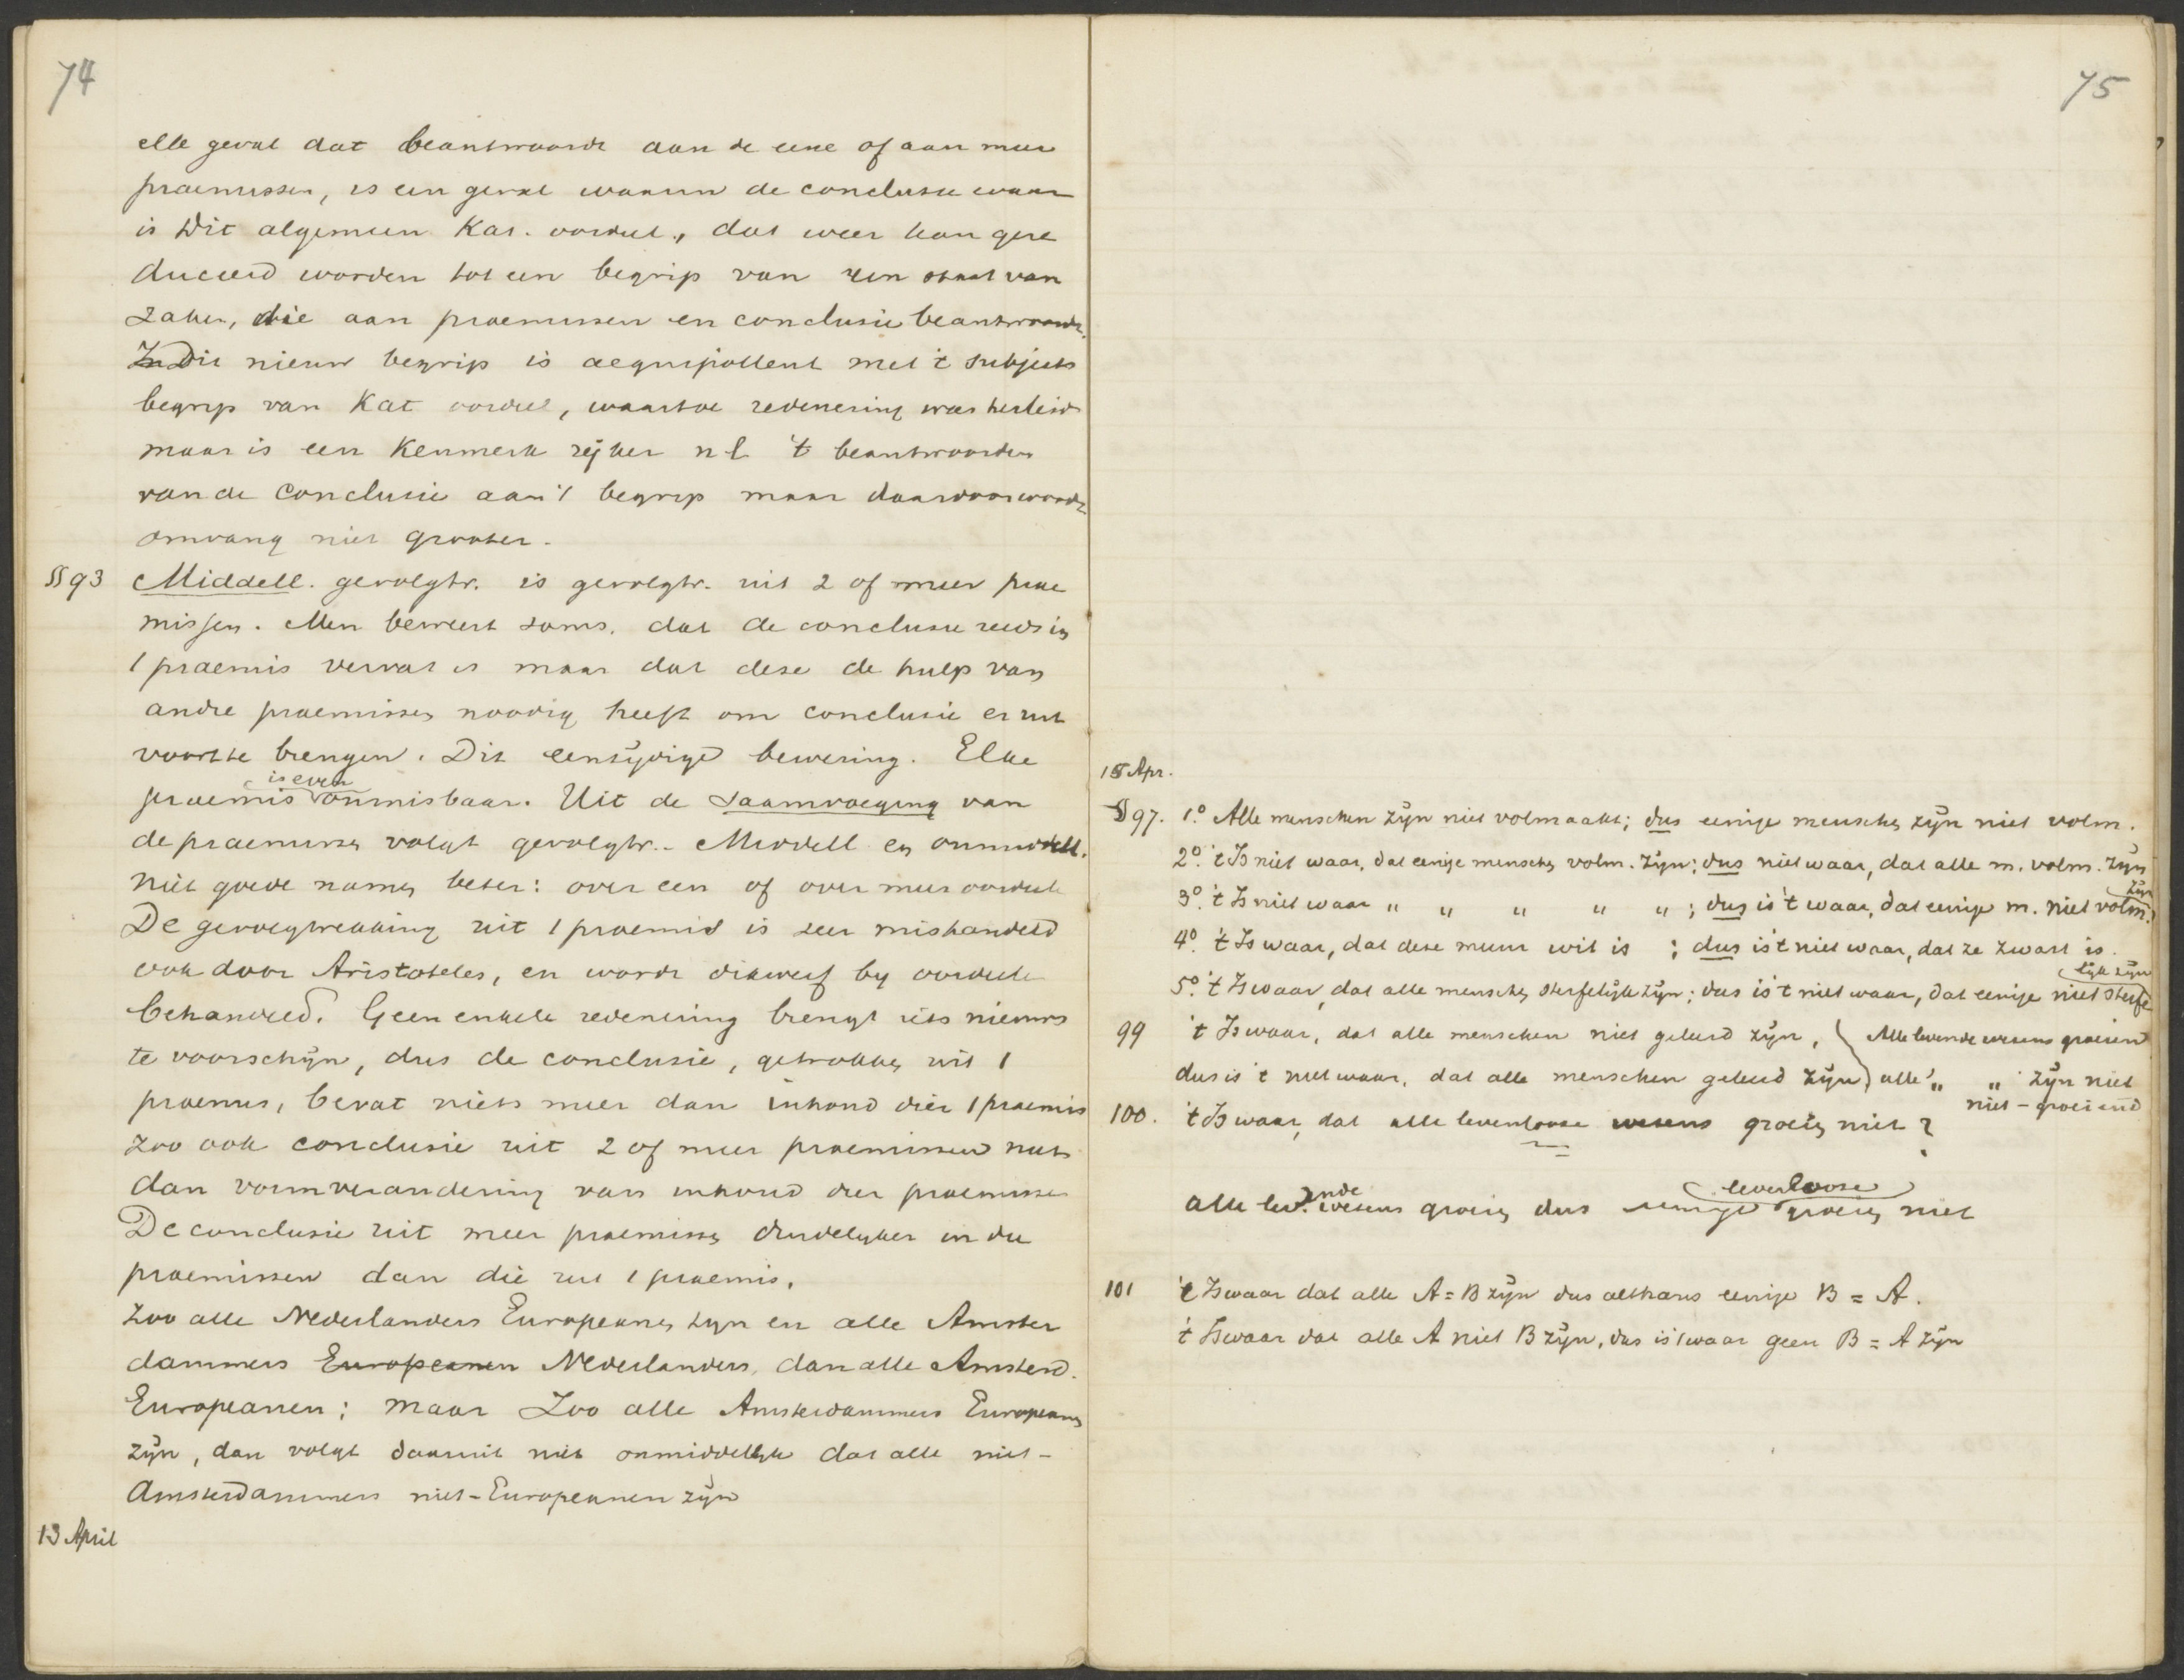 74
elk geval dat beantwoordt aan de eene of aan meer
praemissen, is een geval waarin de conclusie waar
is Dit algemeen Kat. oordeel, dat weer kan gere
duceerd worden tot een begrip van een staat van
zaken, die aan praemissen en conclusie beantwoordt.
Dit nieuw begrip is aequipollent met 't subjects
begrip van Kat oordeel, waartoe redenering was herleid
maar is een Kenmerk rijker n l 't beantwoorden
van de Conclusie aan 't begrip maar daardoor wordt
omvang niet grooter.
§§ 93 Middell. gevolgtr. is gevolgtr. uit 2 of meer prae
missen. Men beweert soms, dat de conclusie reeds in
1 praemis vervat is maar dat deze de hulp van
andre praemissen noodig heeft om conclusie er uit
voort te brengen. Dit eenzijdige bewering. Elke
praemis is even onmisbaar. Uit de saamvoeging van
de praemissen volgt gevolgtr. Middell en onmiddell.
niet goede namen beter: over een of over meer oordeele
De gevolgtrekking uit 1 praemis is zeer mishandeld
ook door Aristoteles, en wordt dikwerf by oordeele
behandeld. Geen enkele redenering brengt iets nieuws
te voorschijn, dus de conclusie, getrokken uit 1
praemis, bevat niets meer dan inhoud dier 1 praemis
zoo ook conclusie uit 2 of meer praemissen niets
dan vormverandering van inhoud der praemissen
De conclusie uit meer praemissen duidelijker in die
praemissen dan die uit 1 praemis.
Zoo alle Nederlanders Europeanen zyn en alle Amster
dammers Europeanen Nederlanders, dan alle Amsterd.
Europeanen; maar Zoo alle Amsterdammers Europeanen
zijn, dan volgt daaruit niet onmiddellijk dat alle niet-
Amsterdammers niet-Europeanen zijn
13 April
75
15 Apr.
§ 97. 1.° Alle menschen zijn niet volmaakt; dus eenige menschen zijn niet volm.
2°. 't Is niet waar, dat eenige menschen volm. zijn; dus niet waar, dat alle m. volm. zijn
3°. 't Is niet waar " " " " " ; dus is 't waar, dat eenige m. niet volm. zijn
4°. 't Is waar, dat deze muur wit is ; dus is 't niet waar, dat ze zwart is.
5°. 't Is waar, dat alle menschen sterfelijk zijn; dus is 't niet waar, dat eenige niet sterfe lijk zijn
99 't Is waar, dat alle menschen niet geleerd zijn, Alle levende wezens groeiend
dus is 't niet waar, dat alle menschen geleerd zijn alle " " zijn niet
niet-groeiend
100. 't Is waar, dat alle levenlooze wezens groeien niet?
alle lev.ende wezens groeien dus eenige levenlooze groeien niet
101 't Is waar dat alle A = B zijn dus althans eenige B = A.
't Is waar dat alle A niet B zijn, dus is 't waar geen B = A zijn